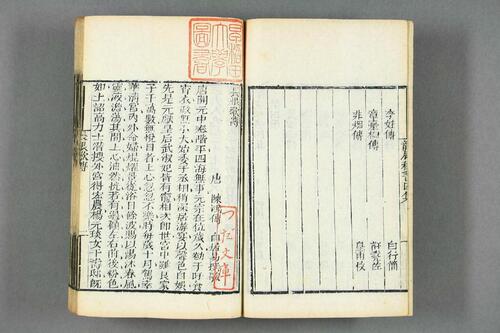 李娃傳 白行簡
章臺柳傳 許堯佐
非烟傳 皇甫枚
長恨歌傳
唐 陳鴻傳
唐開元中泰階平四海無事元宗在位歲久勌于旰食
宵衣政無小大始委于丞相稍深居游宴以聲色自娛
先是元獻皇后武淑妃皆有寵相次即世宮中雖良家
子千萬數無悅目者上心忽忽不樂時每歲十月駕幸
華清宮內外命婦熠燿景從浴日餘波賜以湯沐春風
靈液澹蕩其間上心油然恍若有遇顧左右前後粉色
如土詔高力士潛搜外宮得宏農楊元琰女于壽邸既
長恨歌傳